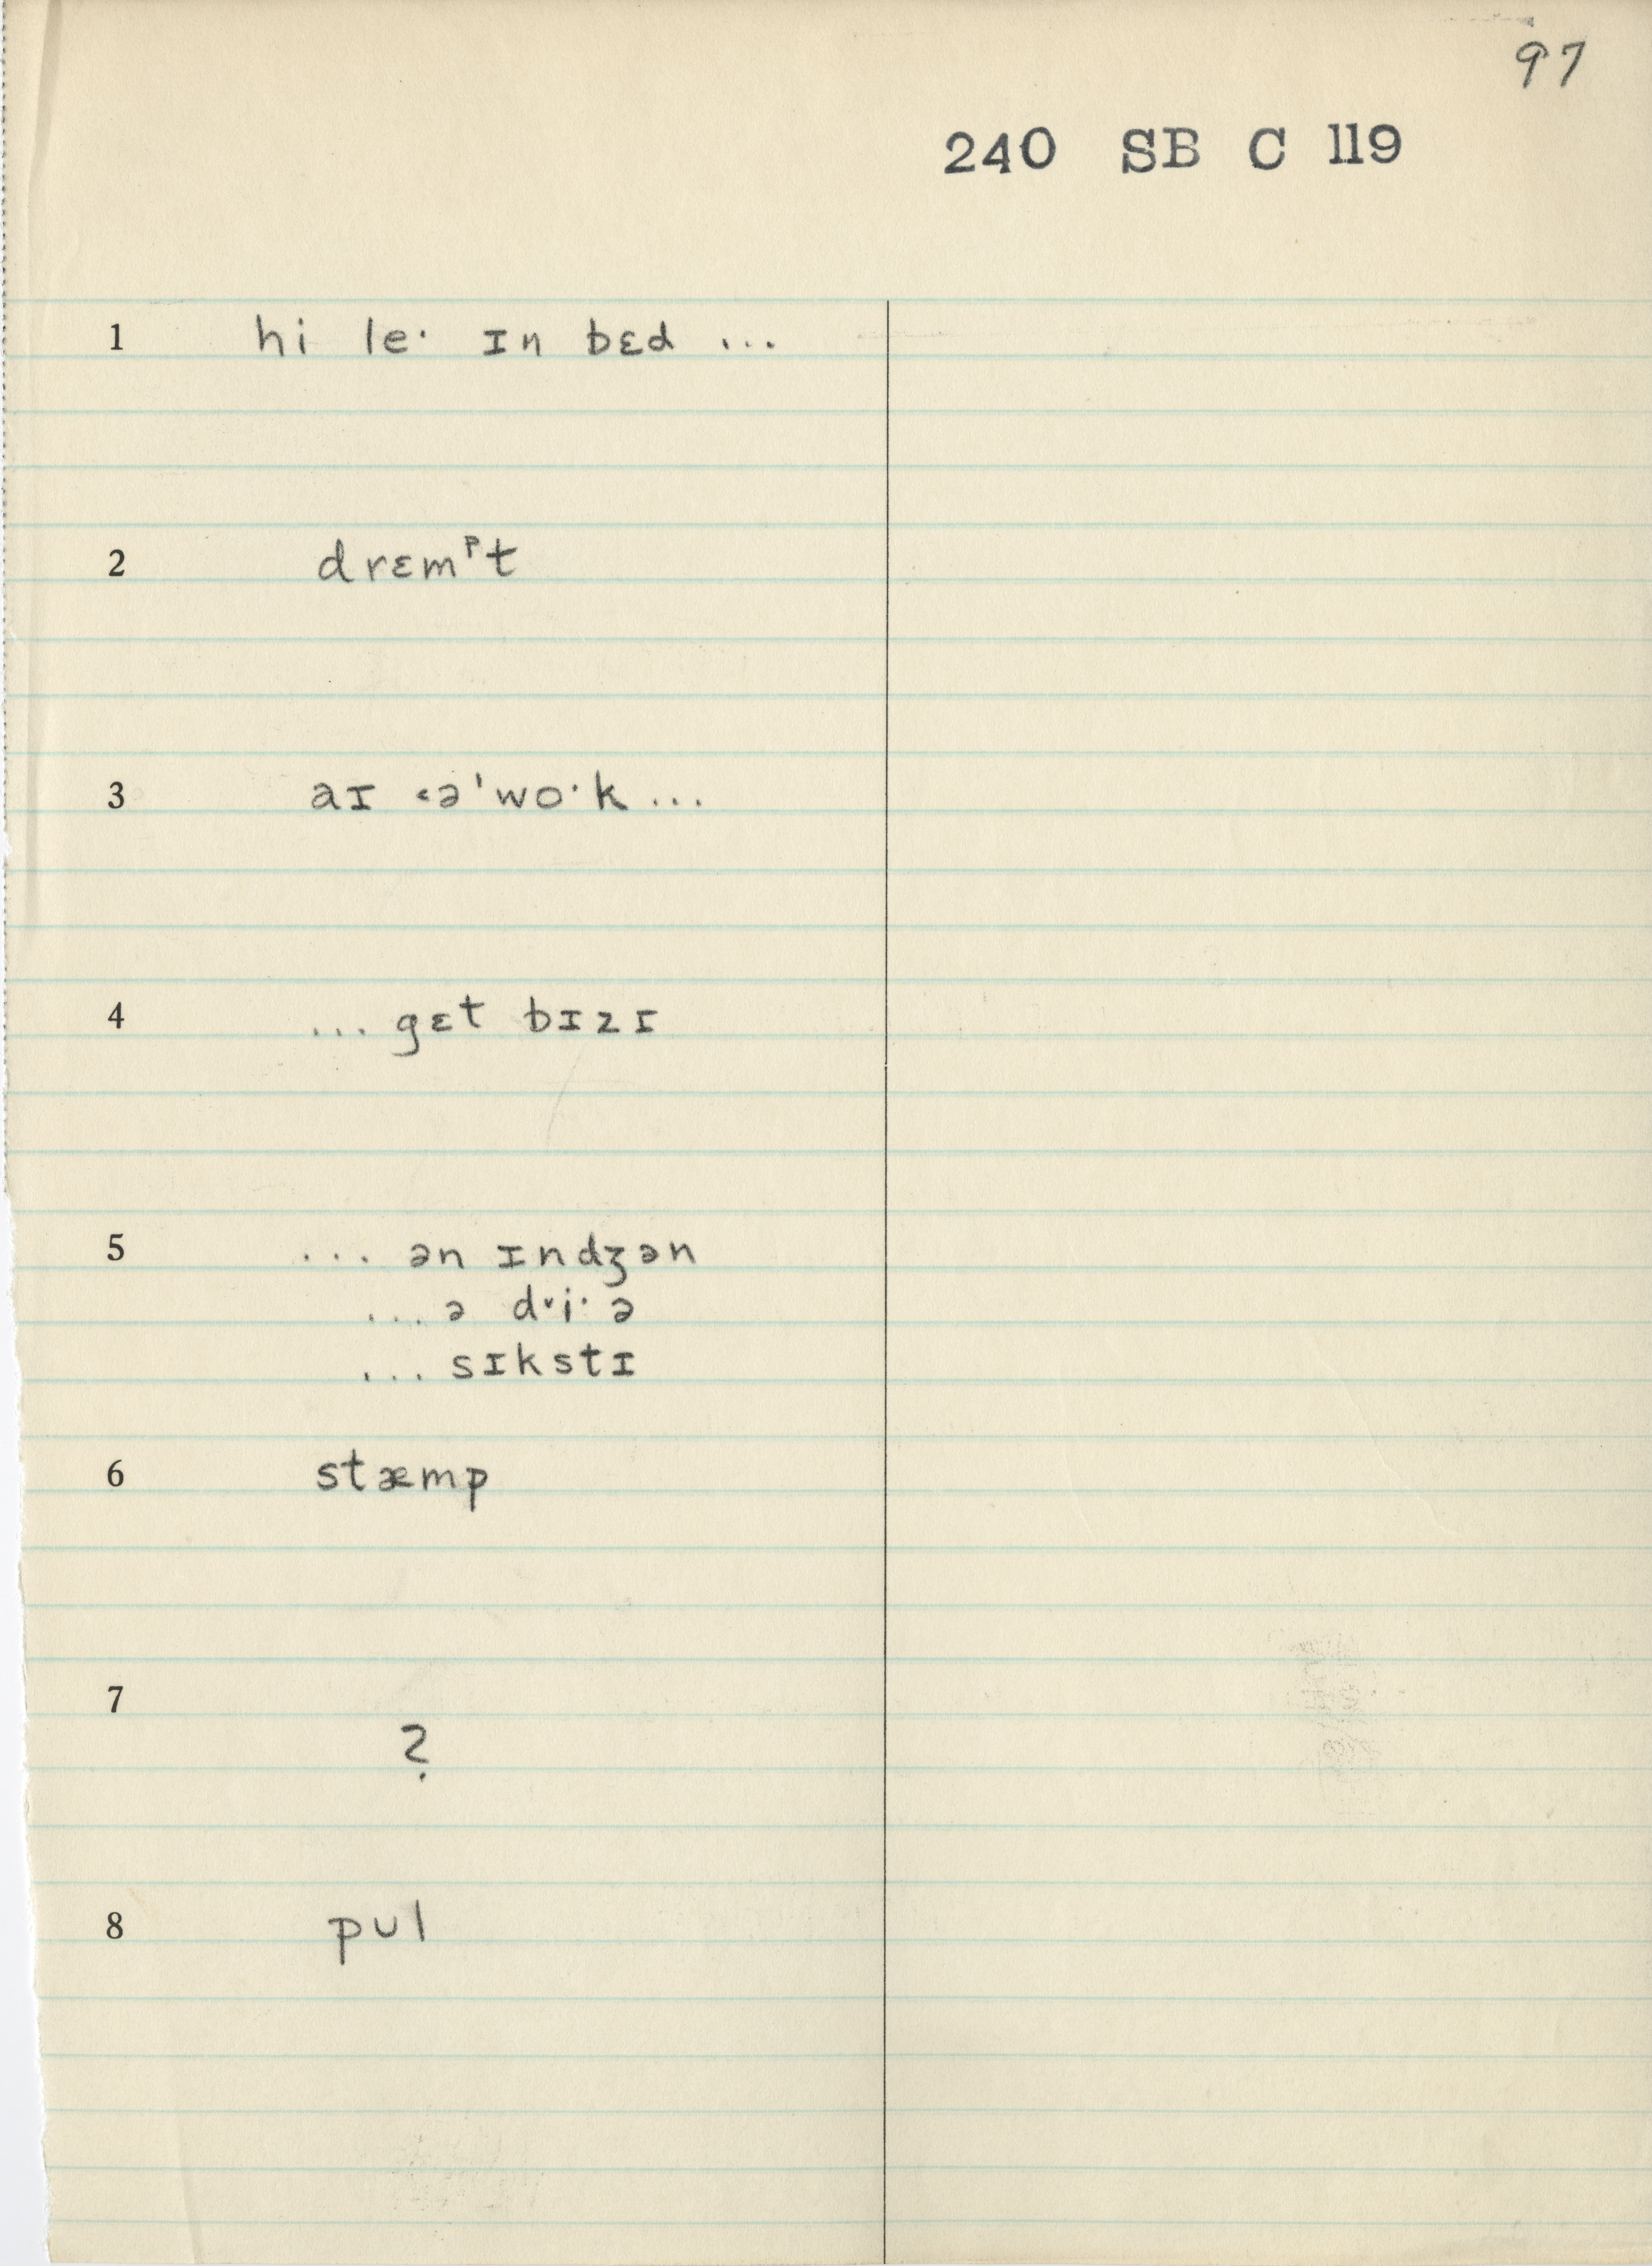 97
240 SB C 119
1 hi le· ɪn bɛd ...
2 drɛmᵖt
3 aɪ ˂ə'wo·k ...
4 ... gɛt bɪzɪ
5 ... ən ɪndʒən
... ə d˅i· ə
... sɪkstɪ
6 stæmp
7
?
8 pul